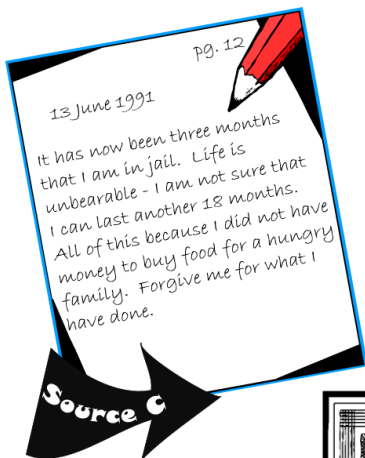 pg. 12
13 June 1991
It has now been three months
that I am in jail. Life is
unbearable - I am not sure that
I can last another 18 months.
All of this because I did not have
money to buy food for a hungry
family. Forgive me for what I
have done.
Source C